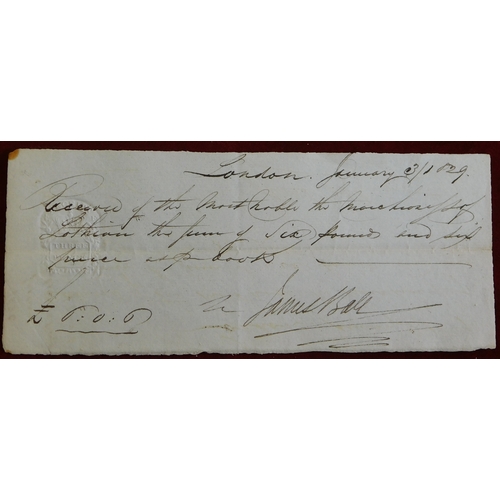 London. January 3/1829.
Received of the Most Noble the Marchioness of
Lothian the sum of Six pounds and six
pence as p book
£ 6:0:6 James Ball